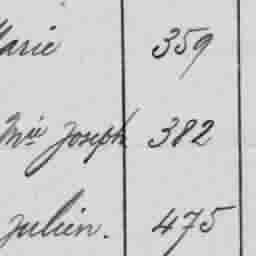 Marie 359
Mie Joseph 382
Julien. 475